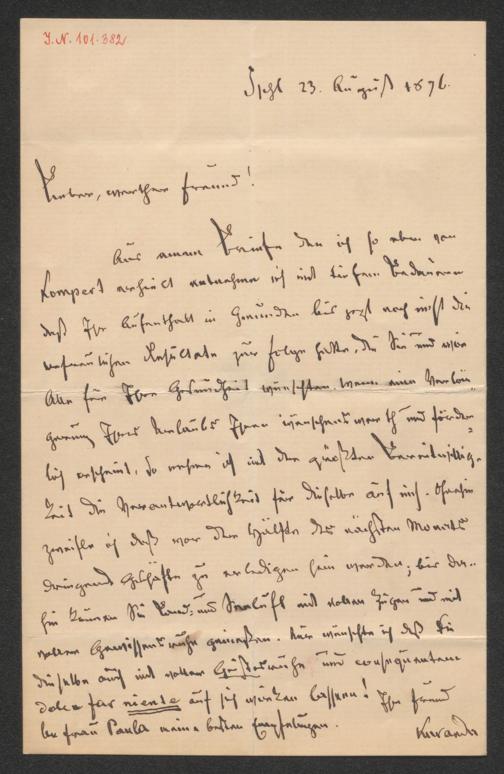 J.N. 101.382
Ischl 23. August 1876.
Lieber, werther Freund!
Aus einem Briefe den ich so eben von
Kompert erhielt entnehme ich mit tiefem Bedauern
daß Ihr Aufenthalt in Gmunden bis jezt noch nicht die
erfreulichen Resultate zur Folge hatte, die Sie und wir
Alle für Ihre Gesundheit wünschten. Wenn eine Verlän-
gerung Ihres Urlaubs Ihnen wünschenswerth und förder-
lich erscheint, so nehme ich mit der größten Bereitwillig-
keit die Verantwortlichkeit für dieselbe auf mich. Ohnehin
zweifle ich daß vor der Hälfte des nächsten Monats
dringende Geschäfte zu erledigen sein werden; bis da-
hin können Sie Land- und Seeluft mit vollen Zügen und mit
voller Gewissensruhe genießen. Nur wünschte ich daß Sie
dieselbe auch mit voller Geistesruhe und consequentem
dolce far niente auf sich wirken lassen! Ihr Freund
der Frau Paula meine besten Empfehlungen. Kuranda